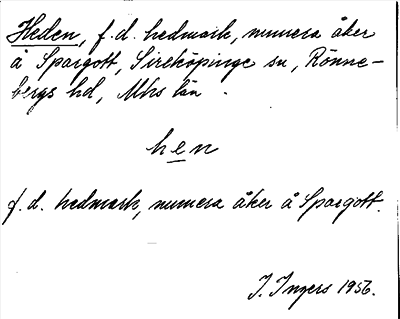 Heden, f.d. hedmark, numera åker
å Spargott, Sireköpinge sn, Rönne-
bergs hd, Mhs län.
hen
f.d. hedmark, numera åker å Spargott.
I. Ingers 1956.